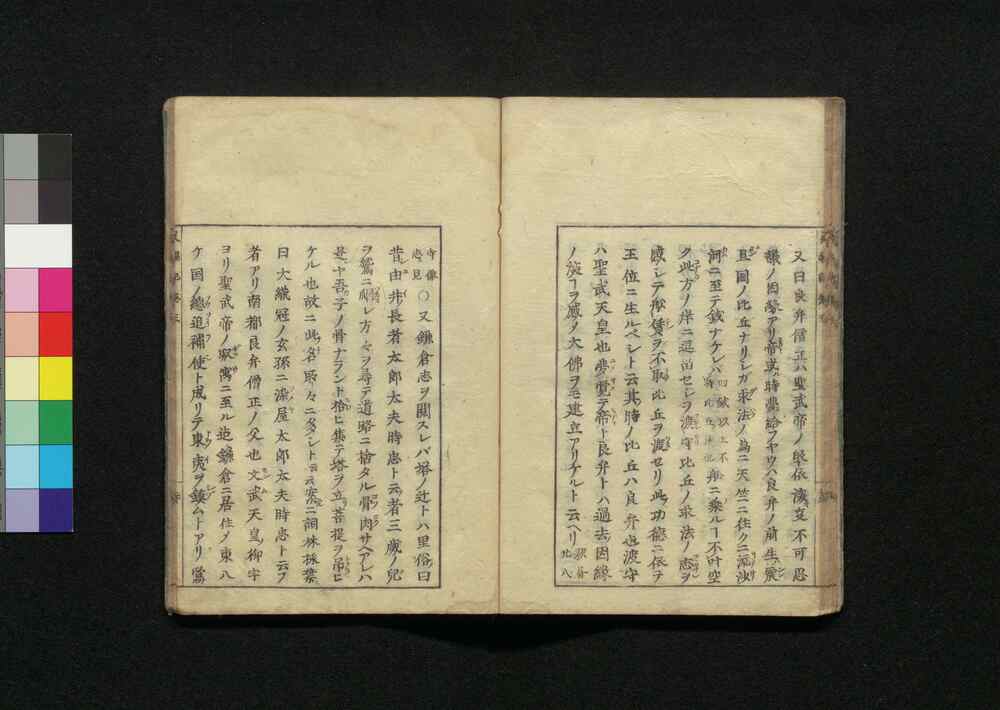 又曰良弁僧正ハ聖武帝ノ帰依浅カラ不可思
議ノ因縁アリ帝或時夢給フヤウハ良弁ノ前生震
旦国ノ比丘ナリシガ求法ノ為ニ天竺ニ往クニ流沙
河ニ至テ銭ナケレバ 舟ニ乗ルヿ不叶空
ク此方ノ岸ニ逗留セシヲ渡守比丘ノ求法ノ志ヲ
感シテ船賃ヲ不取比丘ヲ渡セリ此功徳ニ依テ
王位ニ生ルベシト云其時ノ比丘ハ良弁也渡守
ハ聖武天皇也夢覚テ帝ト良弁トハ過去因縁
ノ深ヿヲ感ノ大佛ヲモ建立アリケルト云ヘリ
寺像
忠見 ○又鎌倉志ヲ閲スレバ塔ノ辻トハ里俗曰
昔由井長者太郎太夫時忠ト云者三歳ノ児
ヲ鷲ニ取レ方々ヲ尋テ道路ニ捨タル骨肉サヘアレハ
是ヤ吾子ノ骨ナラント拾ヒ集テ塔ヲ立菩提ヲ吊ヒ
ケル也故ニ此名所々ニ多シト云云案ニ詞林採葉
曰大織冠ノ玄孫ニ染屋太郎太夫時忠ト云フ
者アリ南都良弁僧正ノ父也文武天皇ノ御宇
ヨリ聖武帝ノ神亀ニ至ル迄鎌倉ニ居住ノ東八
ケ国ノ總追補使ト成リテ東夷ヲ鎮ムトアリ鷲